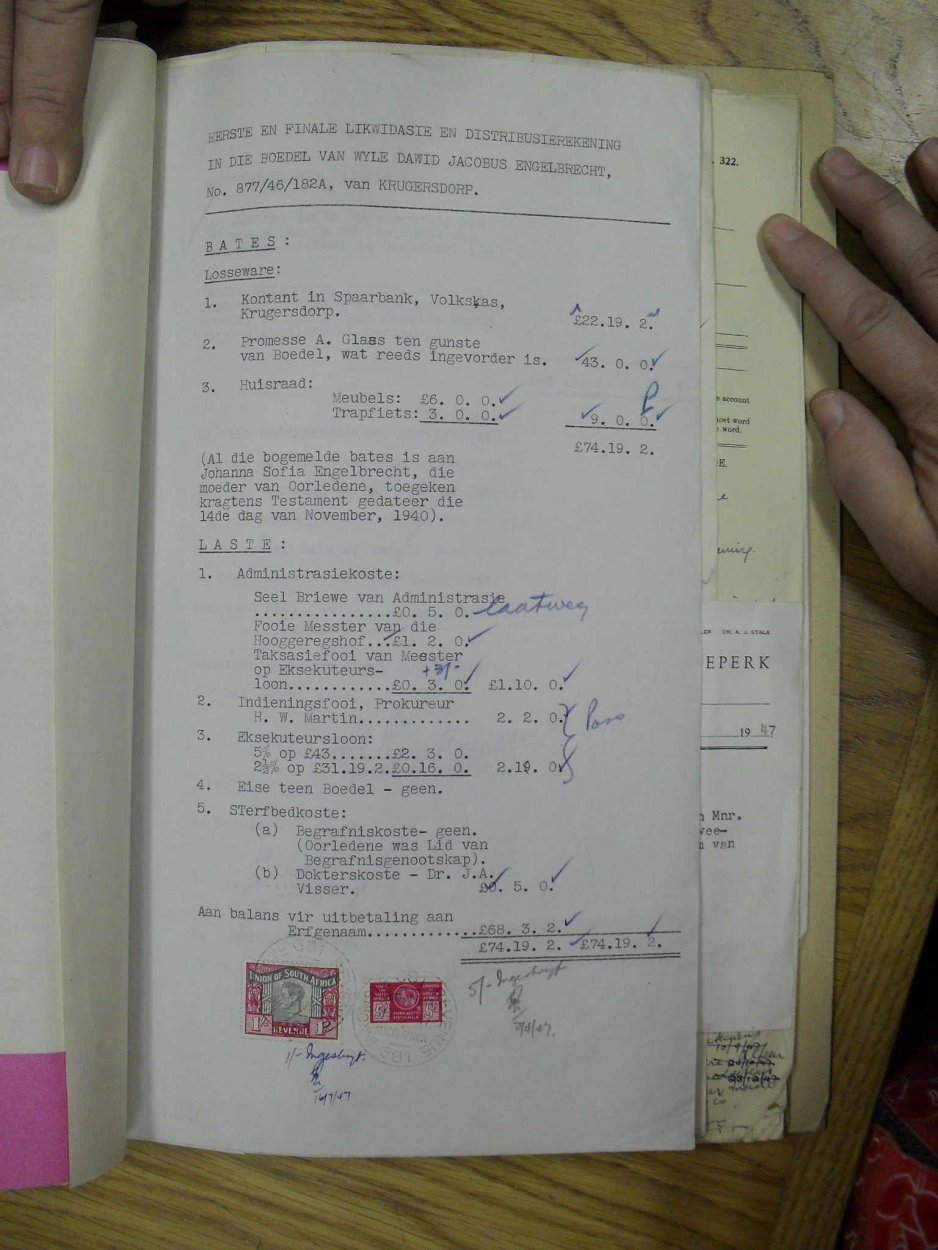 EERSTE EN FINALE LIKWIDASIE EN DISTRIBUSIEREKENING
IN DIE BOEDEL VAN WYLE DAWID JACOBUS ENGELBRECHT,
No. 877/46/182A, van KRUGERSDORP.
B A T E S :
Losseware:
1. Kontant in Spaarbank, Volkskas,
Krugersdorp. £22.19. 2.
2. Promesse A. Glass ten gunste
van Boedel, wat reeds ingevorder is. 43. 0. 0.
3. Huisraad:
Meubels: £6. 0. 0.
Trapfiets: 3. 0. 0. 9. 0. 0.
£74.19. 2.
(Al die bogemelde bates is aan
Johanna Sofia Engelbrecht, die
moeder van Oorledene, toegeken
kragtens Testament gedateer die
14de dag van November, 1940).
L A S T E :
1. Administrasiekoste:
Seel Briewe van Administrasie
................£0. 5. 0. laatweg
Fooie Messter van die
Hooggeregshof...£1. 2. 0.
Taksasiefooi van Meester
op Eksekuteurs- +3/-
loon............£0. 3. 0. £1.10. 0.
2. Indieningsfooi, Prokureur
H. W. Martin............. 2. 2. 0. Pass
3. Eksekuteursloon:
5% op £43.......£2. 3. 0.
2½% op £31.19.2.£0.16. 0. 2.19. 0.
4. Eise teen Boedel - geen.
5. STerfbedkoste:
(a) Begrafniskoste- geen.
(Oorledene was Lid van
Begrafnisgenootskap).
(b) Dokterskoste - Dr. J.A.
Visser. £0. 5. 0.
Aan balans vir uitbetaling aan
Erfgenaam............. £68. 3. 2.
£74.19. 2. £74.19. 2.
UNION OF SOUTH AFRICA
1/- REVENUE
5/- 5/-
REVENUE
5/- Ingeskryf
1/- Ingeskryf
322.
e account
moet word
word.
DE.
LER DR. A. J. STALS
EPERK
19 47
n Mnr.
wee-
n van
10/9/47